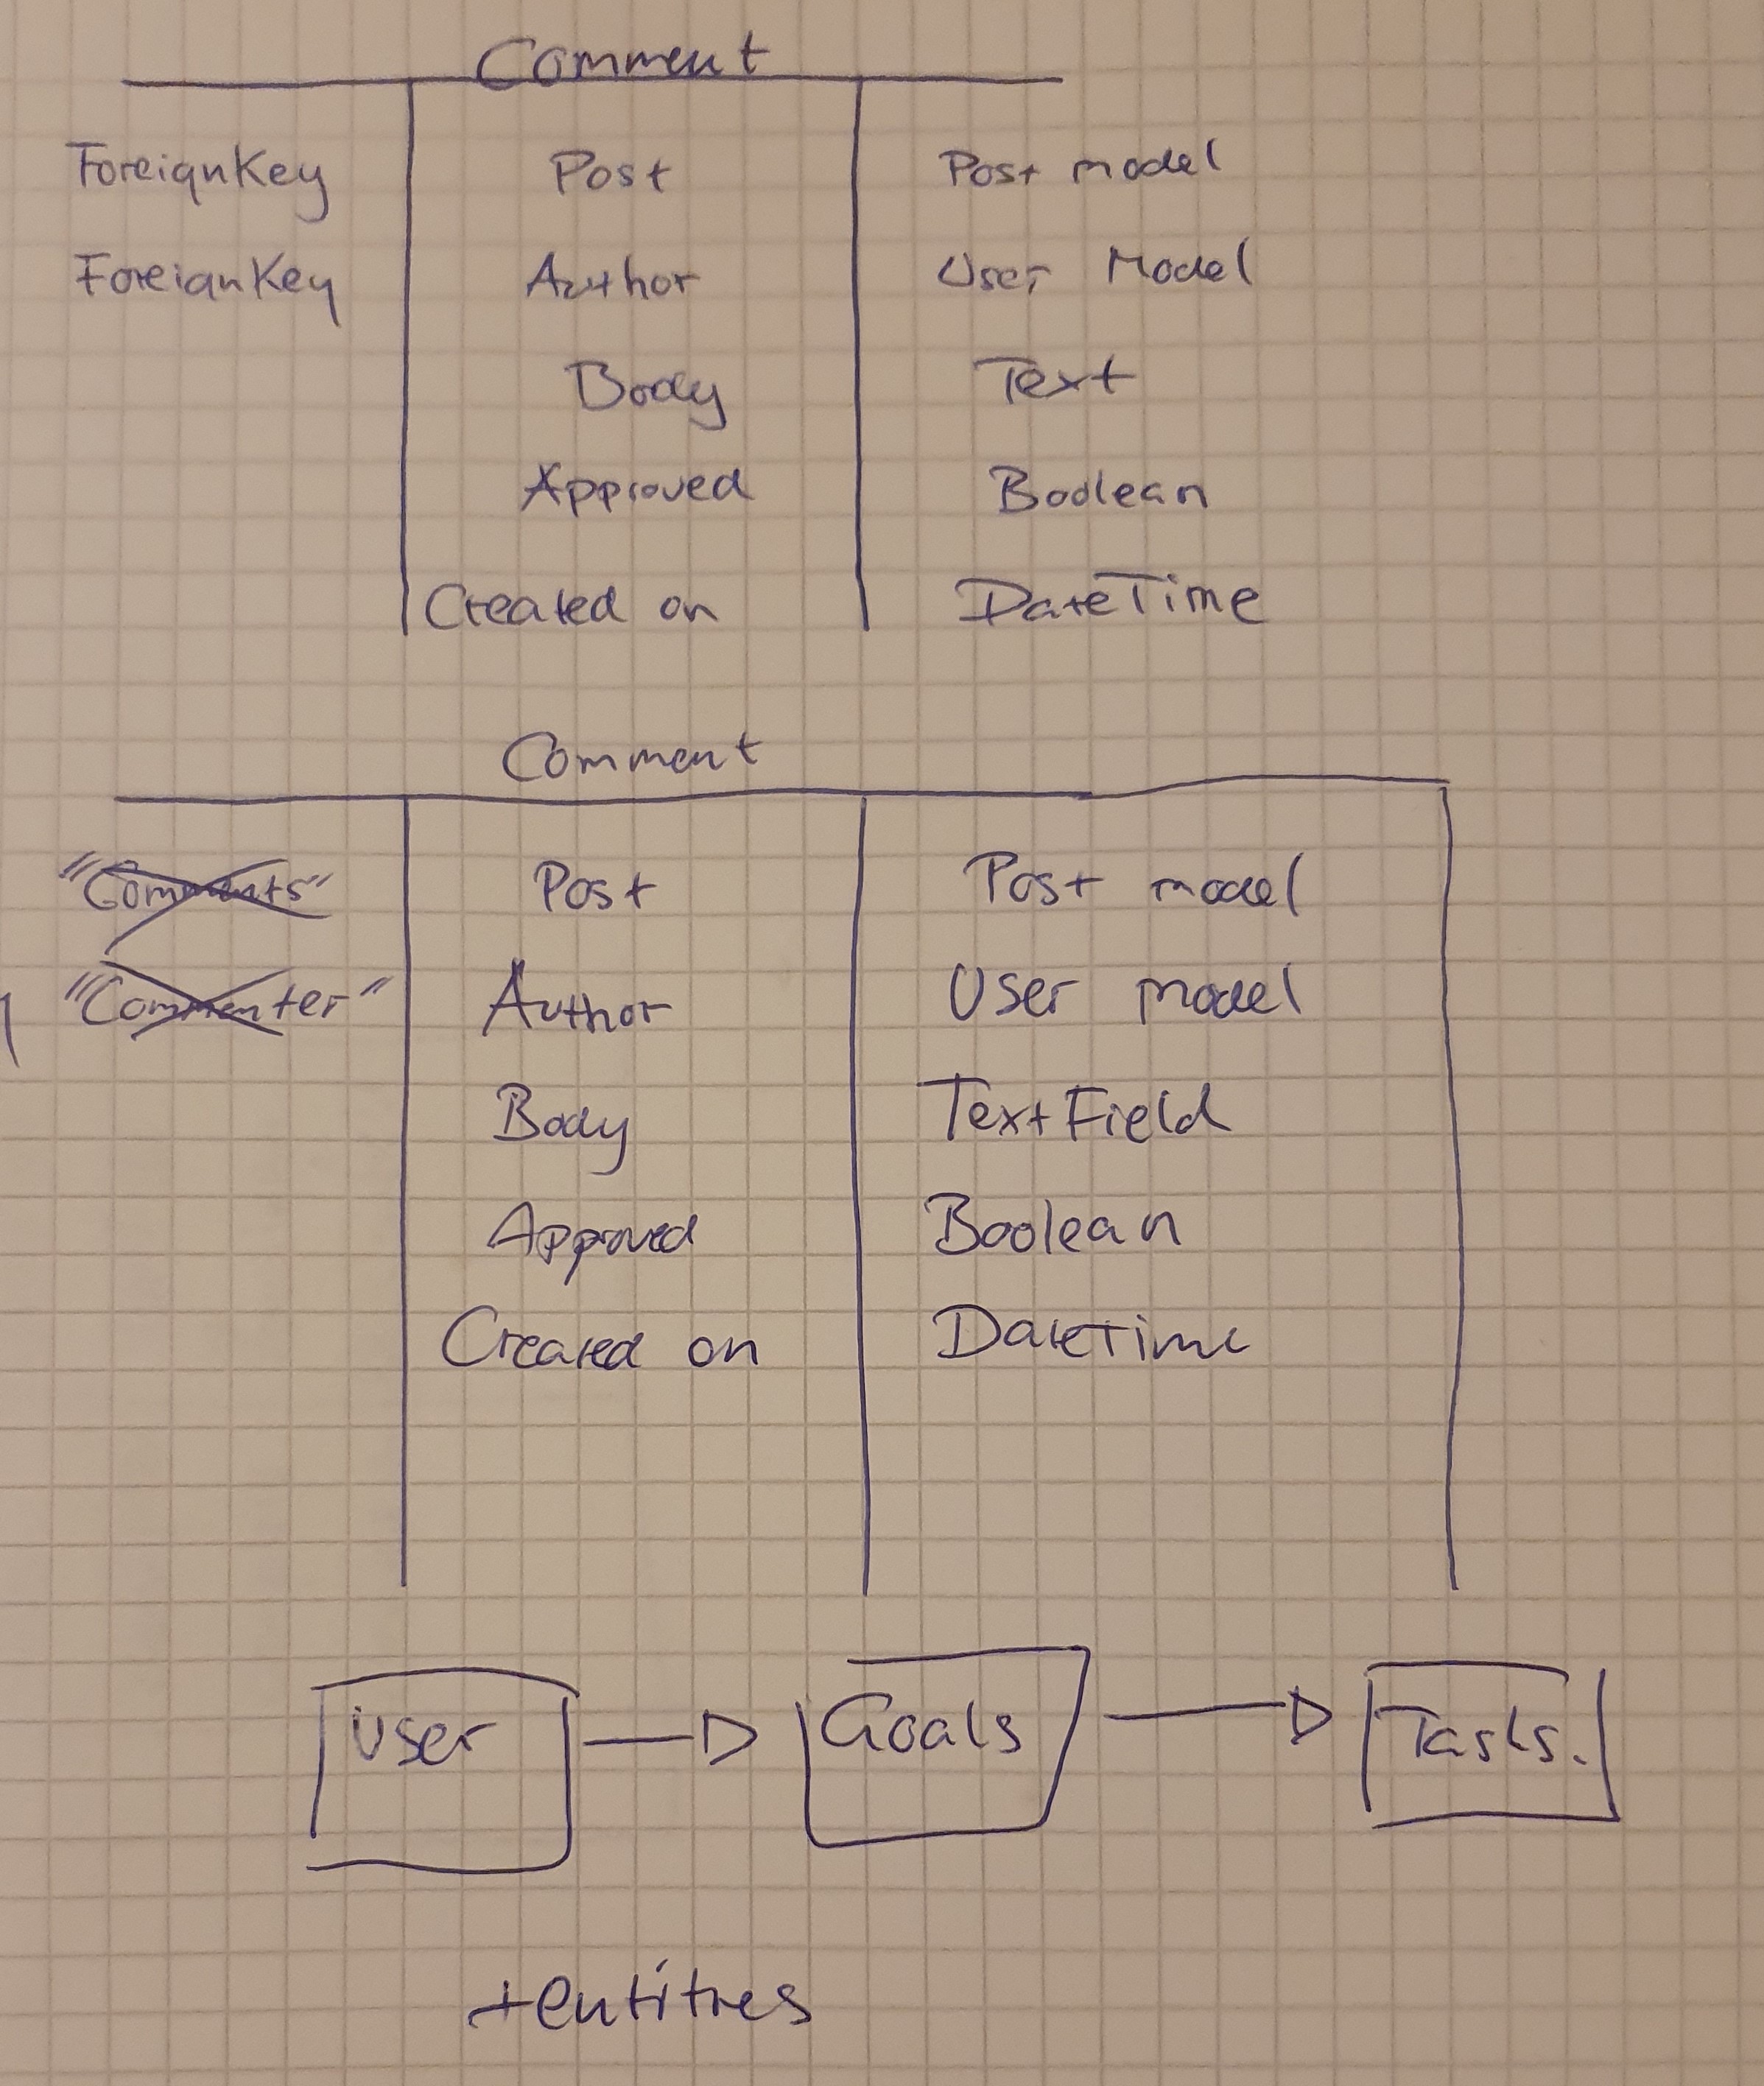 Comment
ForeignKey Post Post model
ForeignKey Author User Model
Body Text
Approved Boolean
Created on DateTime
Comment
"Comments" Post Post model
"Commenter" Author User model
Body TextField
Approved Boolean
Created on DateTime
User Goals Tasks.
+entitres